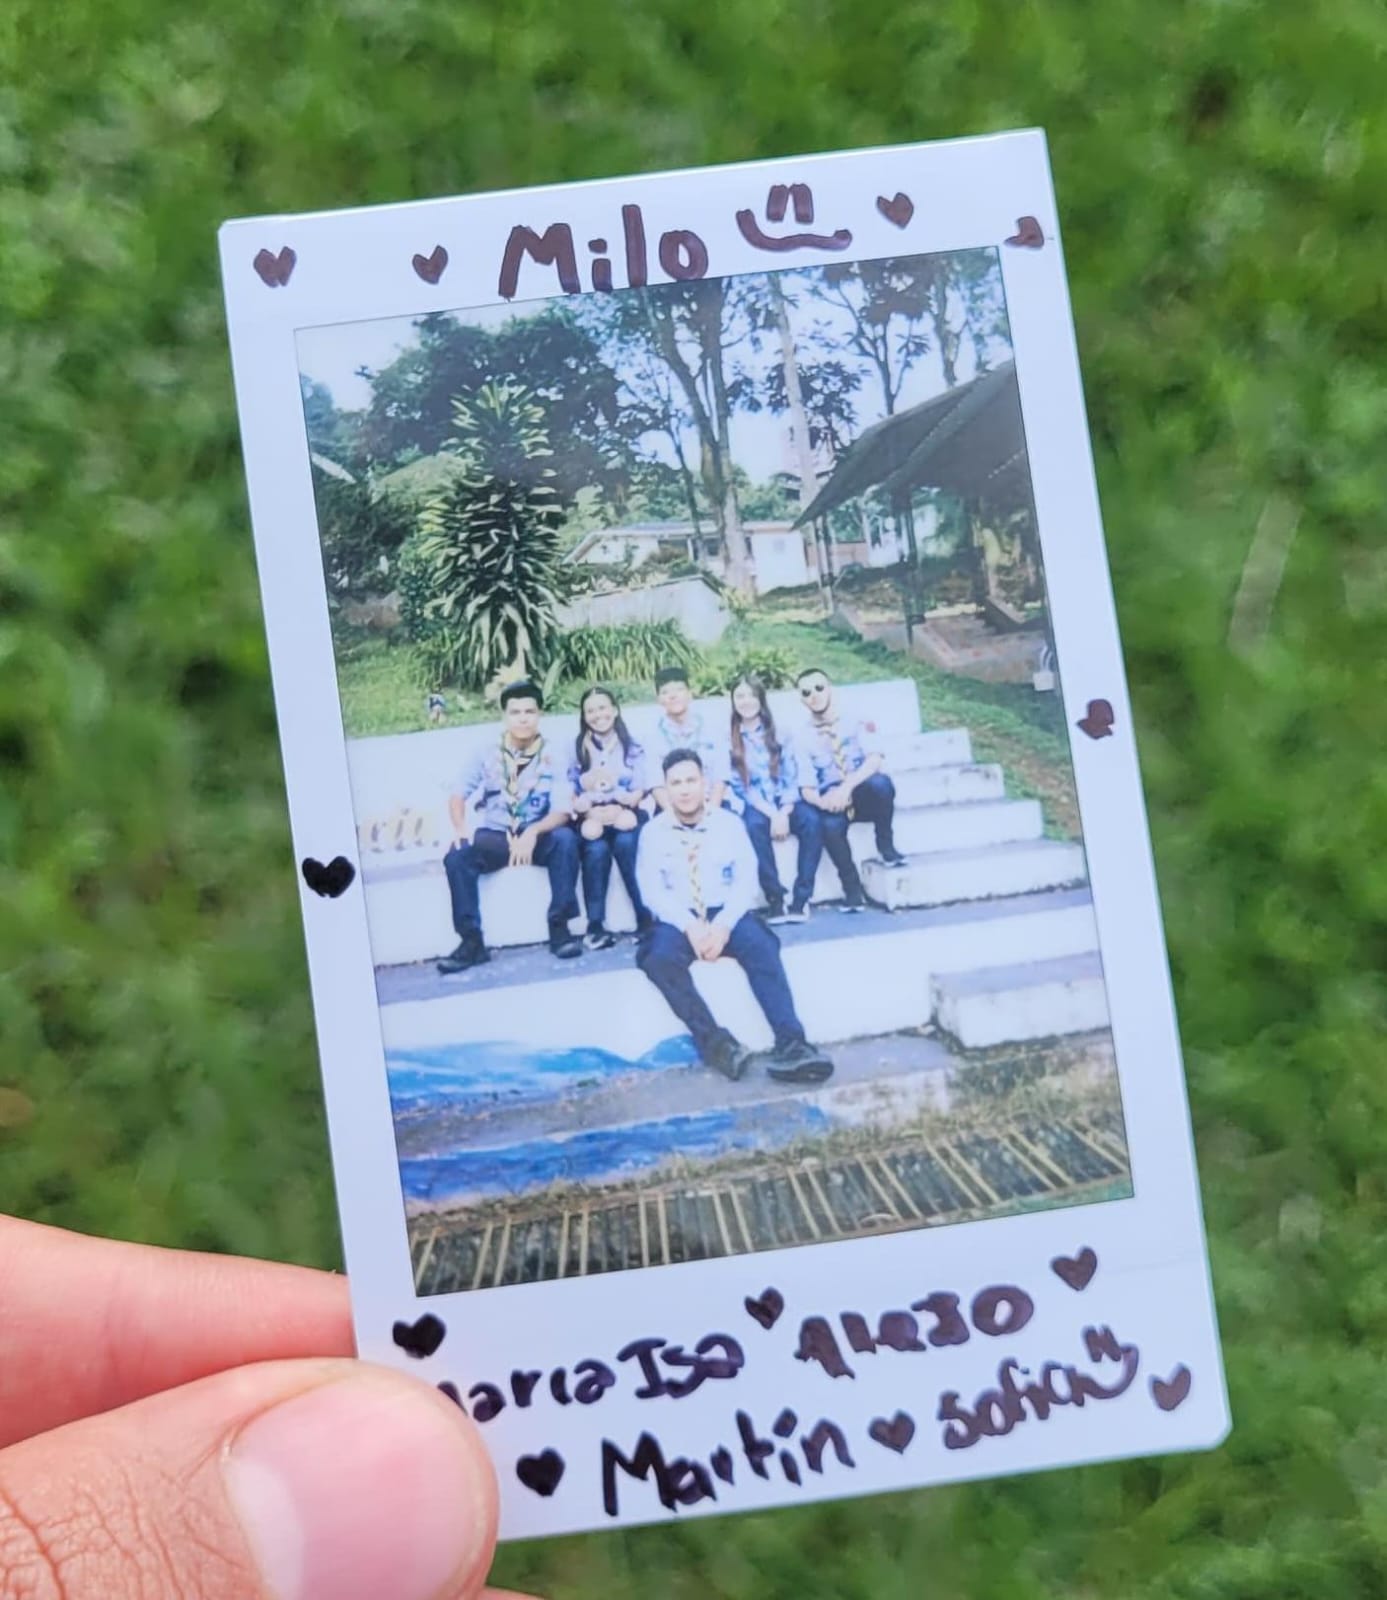 Milo
Maria Isa Alejo
Martín Sofia